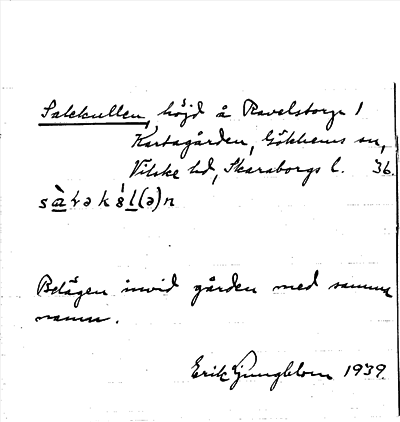 Salekullen, höjd å Ravelstorp 1
Karbogården, Gökhems sn,
Vilske hd, Skaraborgs l. 36.
Belägen invid gården med samma
namn.
Erik Ljungblom 1939.